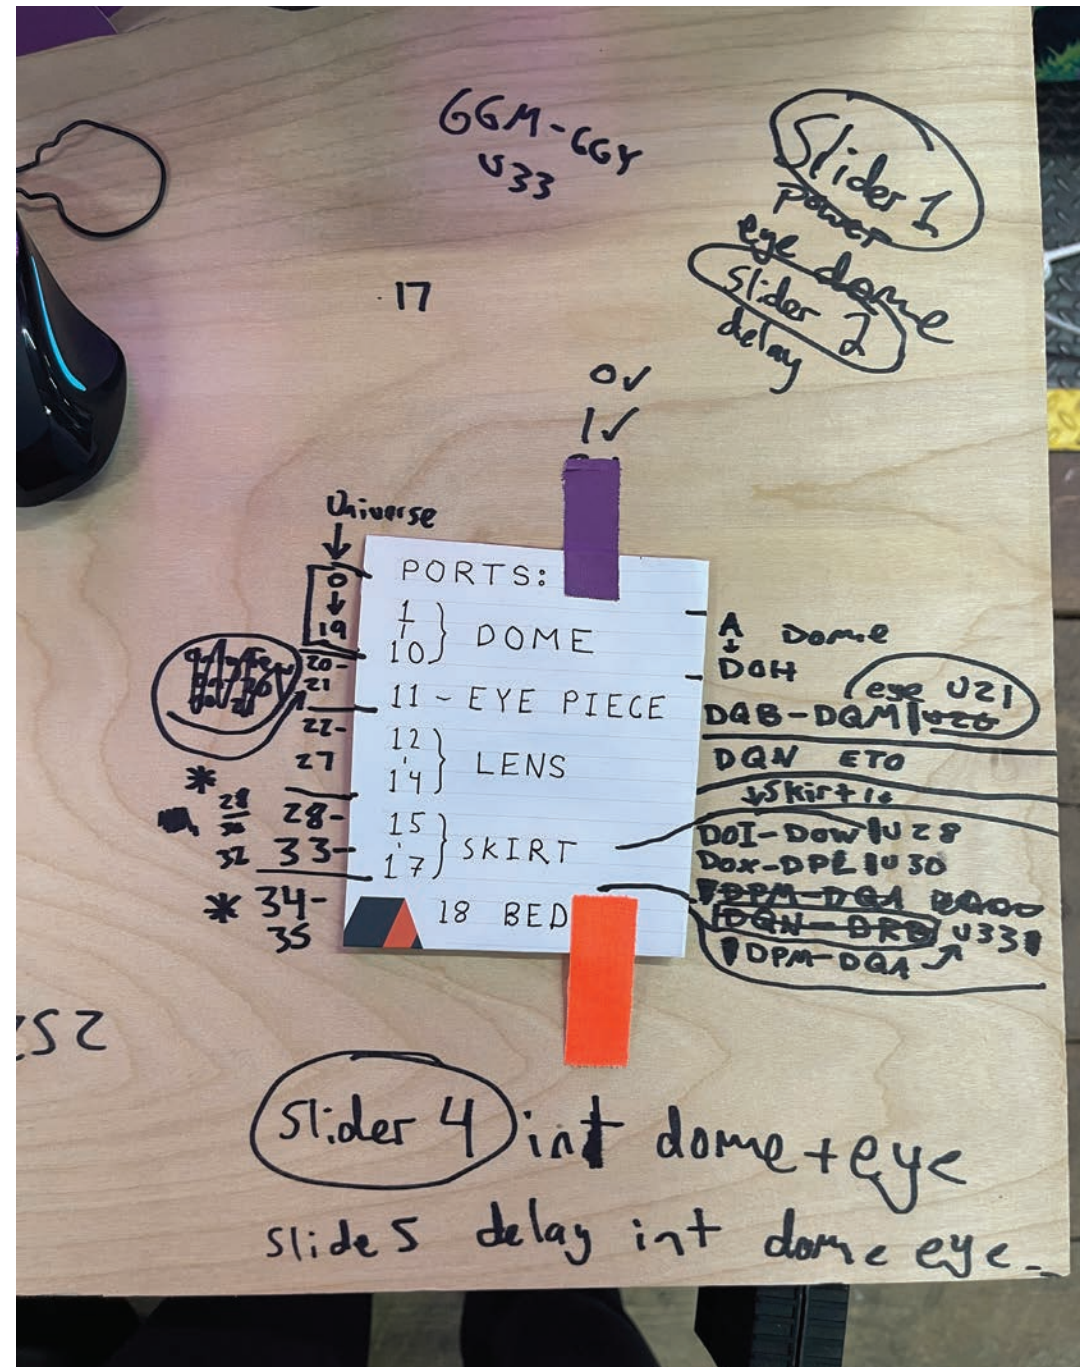 GGM-GGY
U33
Slider 1
power
eye dome
Slider 2
delay
17
0✓
1✓
Universe
0
19
20-
21
22-
27
*
28
30
32
28-
33-
* 34-
35
PORTS:
1
10 } DOME
11 - EYE PIECE
12
14 } LENS
15
17 } SKIRT
18 BED
A Dome
DOH
eye U21
DQB-DQM
DQN ETO
↓Skirt↓
DOI-DOW U28
DOX-DPL U30
DPM-DQA
DQN-DRB U33
DPM-DQA
252
Slider 4 int dome+eye
Slide 5 delay int dome eye